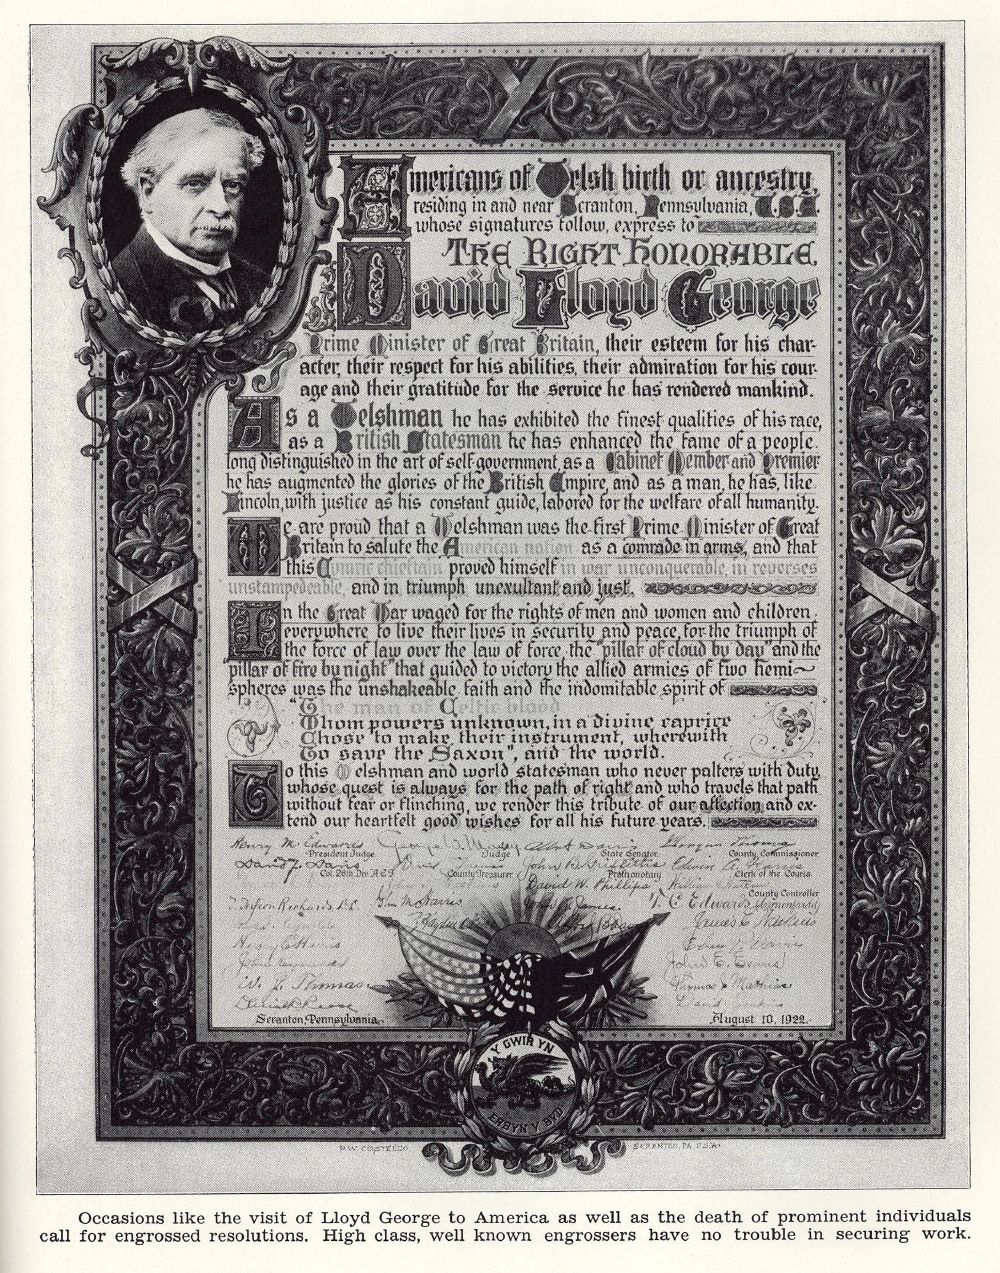 Americans of Welsh birth or ancestry,
residing in and near Scranton, Pennsylvania, U.S.A.
whose signatures follow, express to
The Right Honorable
David Lloyd George
Prime Minister of Great Britain, their esteem for his char-
acter, their respect for his abilities, their admiration for his cour-
age and their gratitude for the service he has rendered mankind.
As a Welshman he has exhibited the finest qualities of his race,
as a British Statesman he has enhanced the fame of a people
long distinguished in the art of self-government, as a Cabinet Member and Premier
he has augmented the glories of the British Empire, and as a man, he has, like
Lincoln, with justice as his constant guide, labored for the welfare of all humanity.
We are proud that a Welshman was the first Prime Minister of Great
Britain to salute the American nation as a comrade in arms, and that
this Cymric chieftain proved himself in war unconquerable, in reverses
unstampedeable, and in triumph unexultant and just.
In the Great War waged for the rights of men and women and children,
everywhere to live their lives in security and peace, for the triumph of
the force of law over the law of force, the "pillar of cloud by day" and the
pillar of fire by night" that guided to victory the allied armies of two hemi~
spheres was the unshakeable faith and the indomitable spirit of
"The man of Celtic blood
Whom powers unknown, in a divine caprice
Chose to make their instrument, wherewith
To save the Saxon", and the world.
To this Welshman and world statesman who never palters with duty,
whose quest is always for the path of right and who travels that path
without fear or flinching, we render this tribute of our affection and ex-
tend our heartfelt good wishes for all his future years.
Henry M. Edwards
President Judge
Judge
State Senator
County Commissioner
David J. Davis
Col. 28th Div. A.E.F.
County Treasurer
Prothonotary
Clerk of the Courts
David W. Phillips
County Controller
T. C. Edwards
John E. Evans
W. L. Thomas
Thomas Mathias
Scranton, Pennsylvania
August 10, 1922
Y GWIR YN
ERBYN Y BYD
P.W. COSTELLO
SCRANTON, PA. U.S.A.
Occasions like the visit of Lloyd George to America as well as the death of prominent individuals
call for engrossed resolutions. High class, well known engrossers have no trouble in securing work.